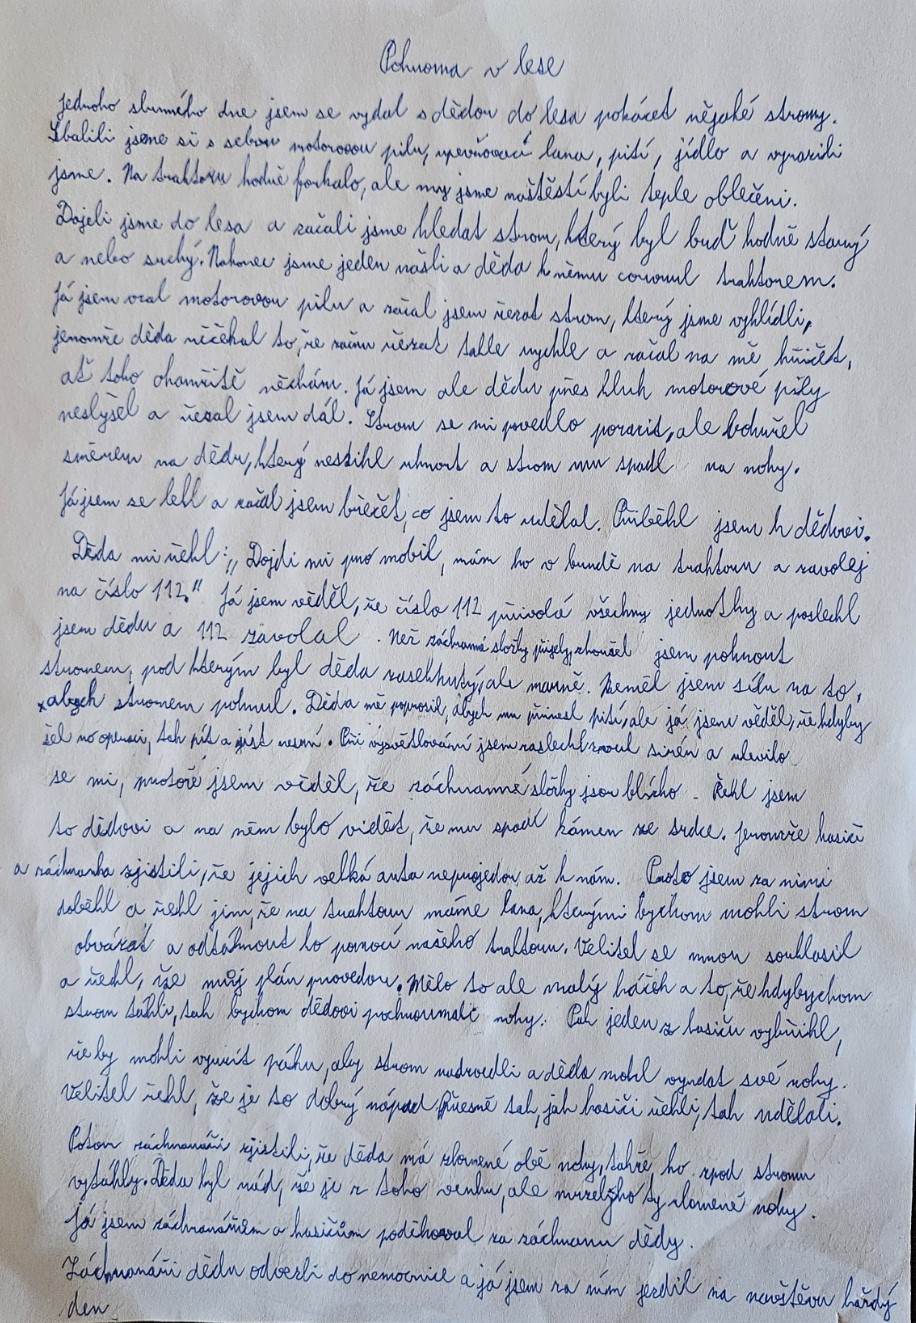 Pohroma v lese
Jednoho slunného dne jsem se vydal s dědou do lesa pokácet nějaké stromy.
Sbalili jsme si s sebou motorovou pilu, upevňovací lana, pití, jídlo a vyrazili
jsme. Na traktoru hodně foukalo, ale my jsme naštěstí byli teple oblečeni.
Dojeli jsme do lesa a začali jsme hledat strom, který byl buď hodně starý
a nebo suchý. Nakonec jsme jeden našli a děda k němu couvnul traktorem.
Já jsem vzal motorovou pilu a začal jsem řezat strom, který jsme vyhlídli,
jenomže děda nečekal to, že začnu řezat takle rychle a začal na mě křičet,
ať toho okamžitě nechám. Já jsem ale dědu přes hluk motorové pily
neslyšel a řezal jsem dál. Strom se mi povedlo porazit, ale bohužel
směrem na dědu, který nestihl uhnout a strom mu spadl na nohy.
Já jsem se lekl a začal jsem brečet, co jsem to udělal. Přiběhl jsem k dědovi.
Děda mi řekl: „Dojdi mi pro mobil, mám ho v bundě na traktoru a zavolej
na číslo 112." Já jsem věděl, že číslo 112 přivolá všechny jednotky a poslechl
jsem dědu a 112 zavolal. Než záchranné složky přijely, zkoušel jsem pohnout
stromem, pod kterým byl děda zaseknutý, ale marně. Neměl jsem sílu na to,
abych stromem pohnul. Děda mě poprosil, abych mu přinesl pití, ale já jsem věděl, že kdyby
šel na operaci, tak pít a jíst nesmí. Při vysvětlování jsem zaslechl zvuk sirén a ulevilo
se mi, protože jsem věděl, že záchranné složky jsou blízko. Řekl jsem
to dědovi a na něm bylo vidět, že mu spadl kámen ze srdce. Jenomže hasiči
a záchranka zjistili, že jejich velká auta neprojedou až k nám. Proto jsem za nimi
doběhl a řekl jim, že na traktoru máme lana, kterými bychom mohli strom
obvázat a odtáhnout ho pomocí našeho traktoru. Velitel se mnou souhlasil
a řekl, že můj plán provedou. Mělo to ale malý háček a to, že kdybychom
strom táhli, tak bychom dědovi pochroumali nohy. Pak jeden z hasičů vykřikl,
že by mohli využít páku, aby strom nadzvedli a děda mohl vyndat své nohy.
Velitel řekl, že je to dobrý nápad. Přesně tak, jak hasiči řekli, tak udělali.
Potom záchranáři zjistili, že děda má zlomené obě nohy, takže ho zpod stromu
vytáhly. Děda byl rád, že je z toho venku, ale mrzely ho ty zlomené nohy.
Já jsem záchranářům a hasičům poděkoval za záchranu dědy.
Záchranáři dědu odvezli do nemocnice a já jsem za ním jezdil na navštěvu každý
den